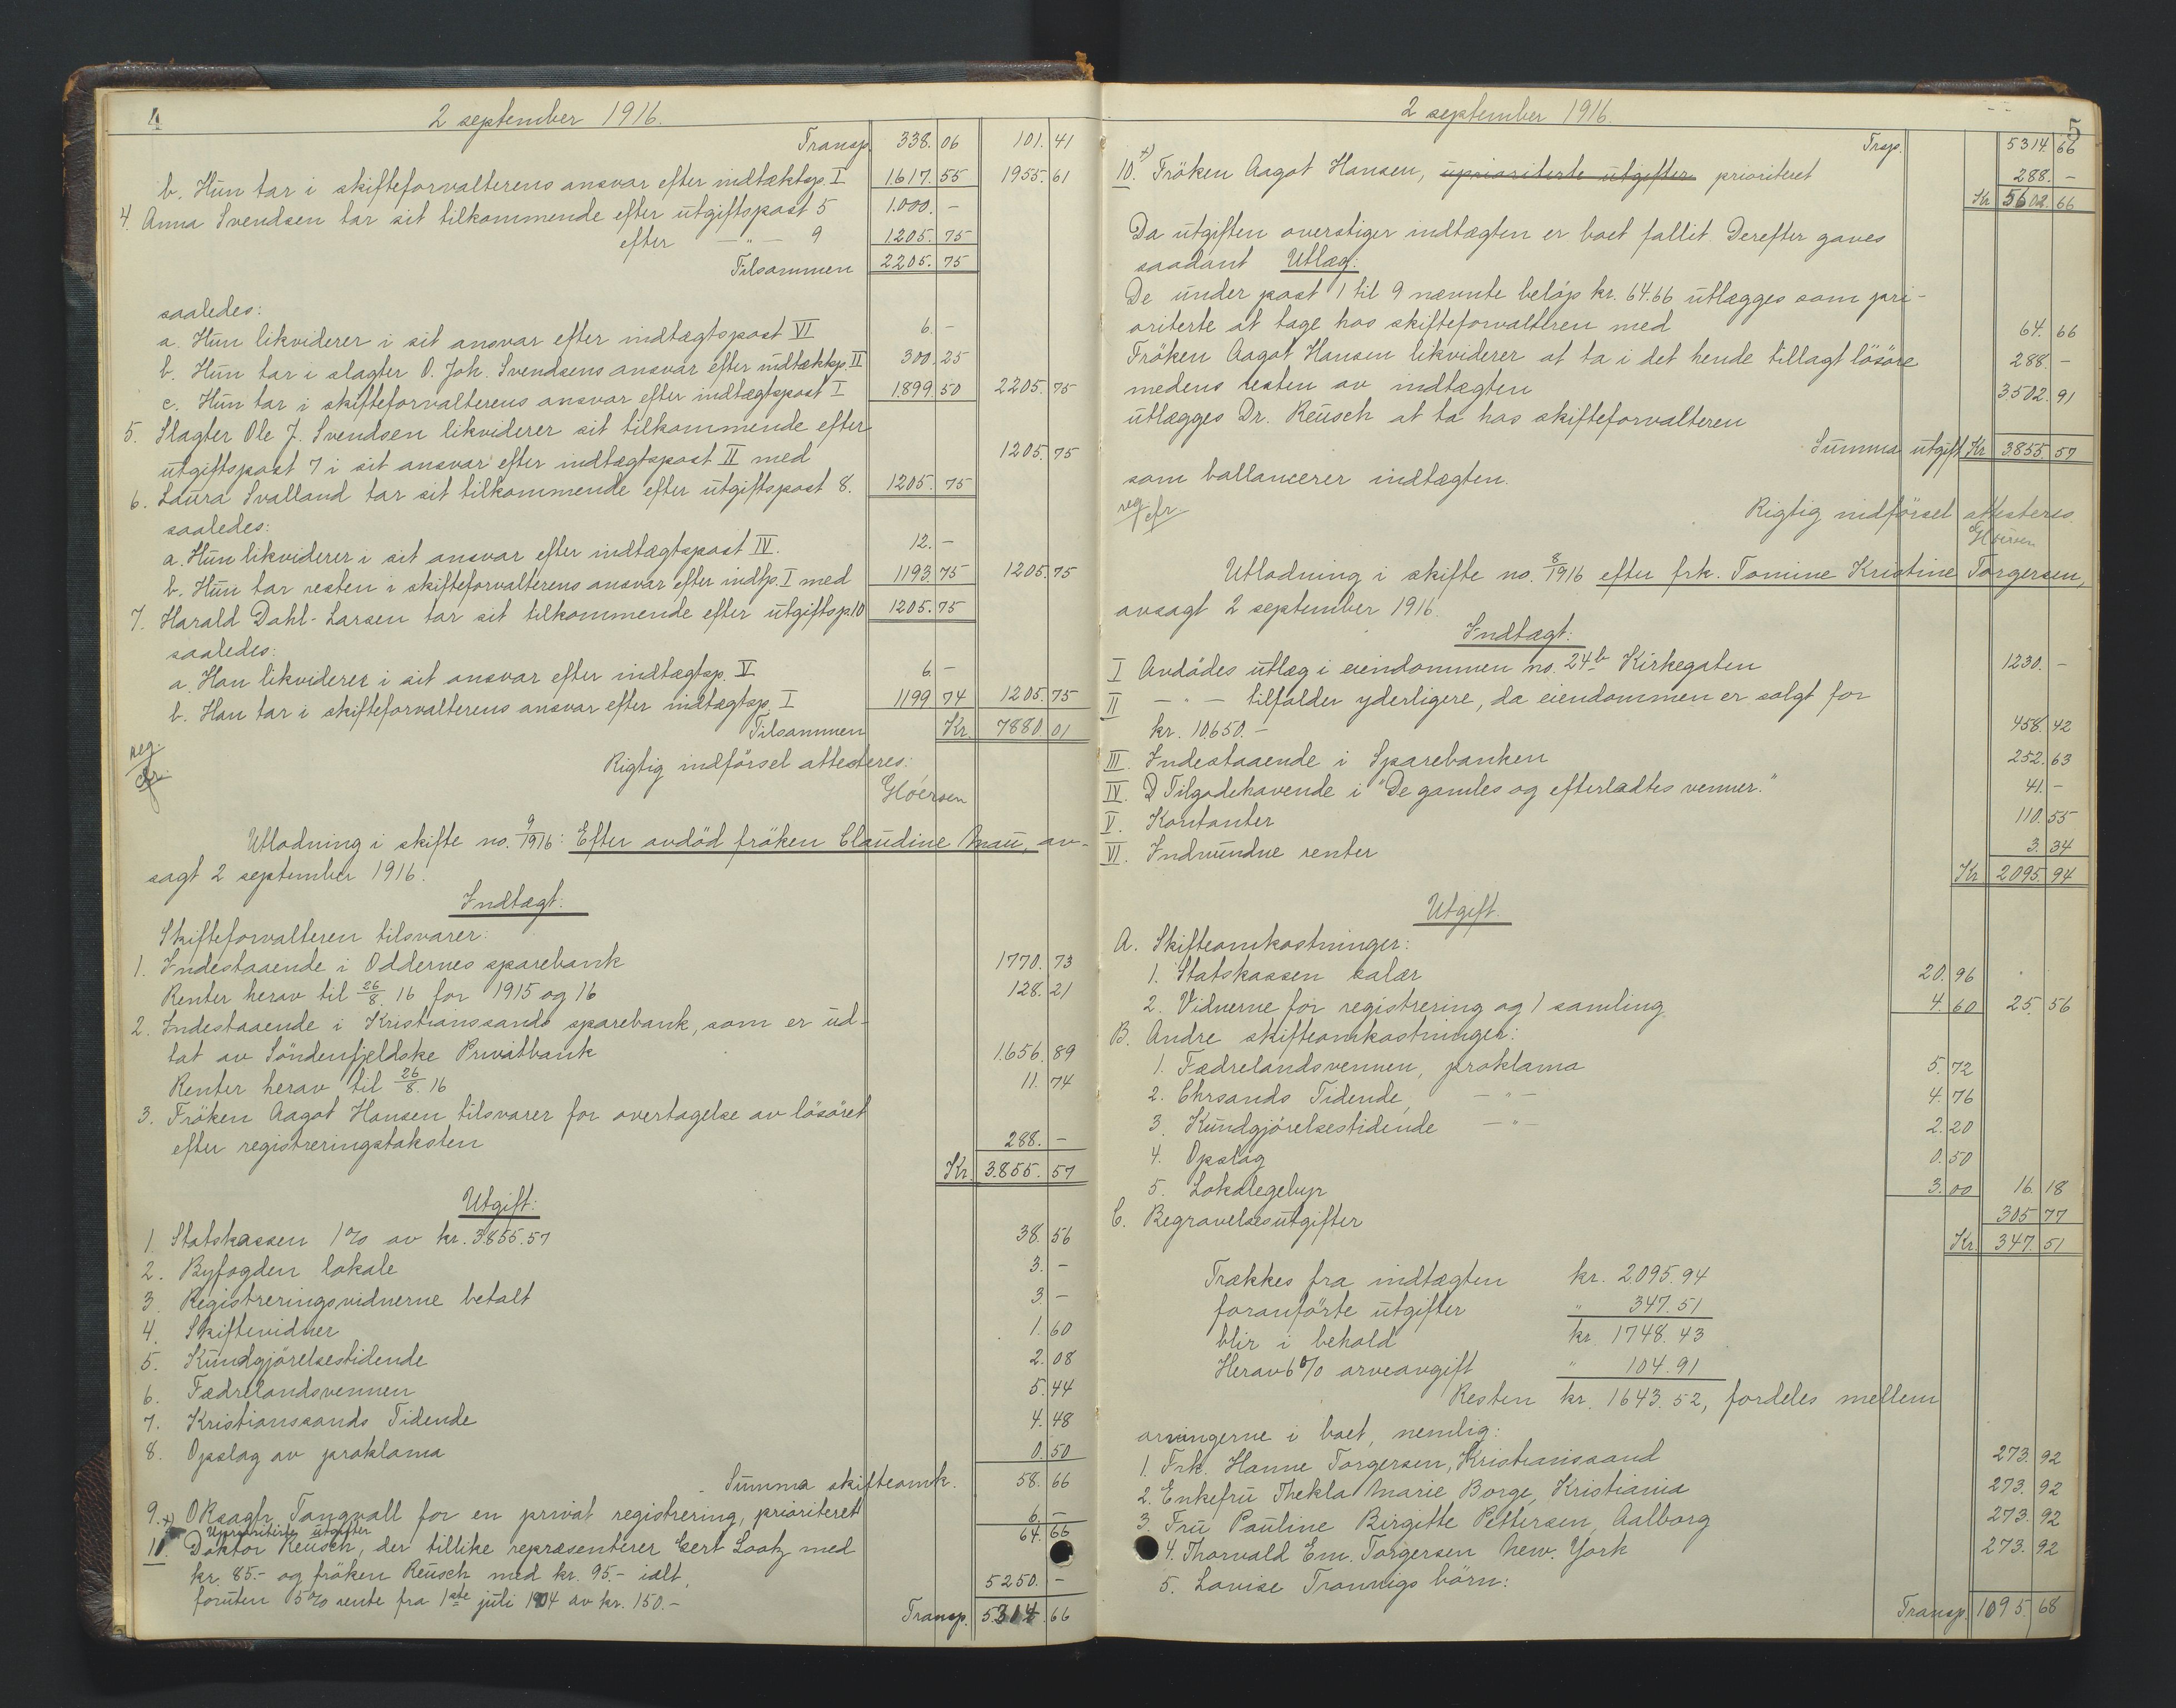 4
2 september 1916.
Transp. 338.06 101.41
b. Hun tar i skifteforvalterens ansvar efter indtæktsp. I 1617.55 1955.61
4. Anna Svendsen tar sit tilkommende efter utgiftspost 5 1.000.-
efter -"- 9 1205.75
Tilsammen 2205.75
saaledes:
a. Hun likviderer i sit ansvar efter indtægtspost VI 6.-
b. Hun tar i slagter O. Joh. Svendsens ansvar efter indtæktsp. II 300.25
c. Hun tar i skifteforvalterens ansvar efter indtægtspost I 1899.50 2205.75
5. Slagter Ole J. Svendsen likviderer sit tilkommende efter
utgiftspost 7 i sit ansvar efter indtægtspost II med 1205.75
6. Laura Svalland tar sit tilkommende efter utgiftspost 8. 1205.75
saaledes:
a. Hun likviderer i sit ansvar efter indtægtspost IV. 12.-
b. Hun tar resten i skifteforvalterens ansvar efter indtp. I med 1193.75 1205.75
7. Harald Dahl-Larsen tar sit tilkommende efter utgiftsp. 10 1205.75
saaledes:
a. Han likviderer i sit ansvar efter indtægtsp. V 6.-
b. Han tar i skifteforvalterens ansvar efter indtægtsp. I 1199 74 1205.75
Tilsammen Kr. 7880.01
reg.
cfr.
Rigtig indførsel attesteres:
Utlodning i skifte no. 9/1916: Efter avdød frøken Claudine Mau, av-
sagt 2 september 1916.
Indtægt:
Skifteforvalteren tilsvarer:
1. Indestaaende i Oddernes sparebank 1770.73
Renter herav til 26/8.16 for 1915 og 16 128.21
2. Indestaaende i Kristianssands sparebank, som er ud-
tat av Söndenfjeldske Privatbank 1.656.89
Renter herav til 26/8.16 11.74
3. Frøken Aagot Hansen tilsvarer for overtagelse av løsøret
efter registreringstaksten 288.-
Kr. 3.855.57
Utgift:
1. Statskassen 1% av kr. 3855.57 38.56
2. Byfogden lokale 3.-
3. Registreringsvidnerne betalt 3.-
4. Skiftevidner 1.60
5. Kundgjørelsestidende 2.08
6. Fædrelandsvennen 5.44
7. Kristianssands Tidende 4.48
8. Opslag av proklama 0.50
Summa skifteomk. 58.66
9. x) ORsagfr. Tangvall for en privat registrering, prioriteret 6.-
64.66
Uprioriterte utgifter
10. Doktor Reusch, der tillike repræsenterer Gert Lootz med
kr. 85.- og frøken Reusch med kr. 95.- ialt, 5250.-
foruten 5% rente fra 1ste juli 1904 av kr. 150.-
Transp. 5.314.66
5
2 september 1916.
Trsp. 5314.66
10. x) Frøken Aagot Hansen, uprioriterte utgifter prioriteret 288.-
Kr 5602.66
Da utgiften overstiger indtægten er boet fallit. Derefter gaves
saadant Utlæg:
De under post 1 til 9 nævnte beløp kr. 64.66 utlægges som pri-
oriterte at tage hos skifteforvalteren med 64.66
Frøken Aagot Hansen likviderer at ta i det hende tillagt løsøre 288.-
medens resten av indtægten 3502.91
utlægges Dr. Reusch at ta hos skifteforvalteren
Summa utgift Kr 3855.57
som ballancerer indtægten.
reg/cfr.
Rigtig indførsel attesteres
Utlodning i skifte no. 8/1916 efter frk. Tomine Kristine Torgersen,
avsagt 2 september 1916.
Indtægt:
I Avdødes utlæg i eiendommen no. 24b Kirkegaten 1230.-
II -"- tilfalder yderligere, da eiendommen er solgt for
kr. 10.650.- 458.42
III. Indestaaende i Sparebanken 252.63
IV. Tilgodehavende i "De gamles og efterladtes venner." 41.-
V. Kontanter 110.55
VI. Indvundne renter 3.34
Kr 2095.94
Utgift.
A. Skifteomkostninger:
1. Statskassen salær 20.96
2. Vidnerne for registrering og 1 samling 4.60 25.56
B. Andre skifteomkostninger:
1. Fædrelandsvennen, proklama 5.72
2. Chrsands Tidende, -"- 4.76
3. Kundgjørelsestidende -"- 2.20
4. Opslag 0.50
5. Lokalegebyr 3.00 16.18
C. Begravelsesutgifter 305.77
Kr 347.51
Trækkes fra indtægten kr. 2095.94
foranførte utgifter " 347.51
blir i behold kr. 1748.43
Herav 6% arveavgift " 104.91
Resten kr. 1643.52, fordeles mellem
arvingerne i boet, nemlig:
1. Frk. Hanne Torgersen, Kristianssand 273.92
2. Enkefru Thekla Marie Borge, Kristiania 273.92
3. Fru Pauline Birgitte Pettersen, Aalborg 273.92
4. Thorvald Em. Torgersen New. York 273.92
5. Lovise Tronnigs børn:
Transp. 1095.68